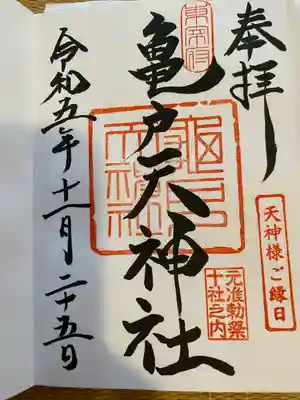 奉拝
天神様ご縁日
東宰府
亀戸天神社
元准勅祭
十社之内
令和五年十一月二十五日